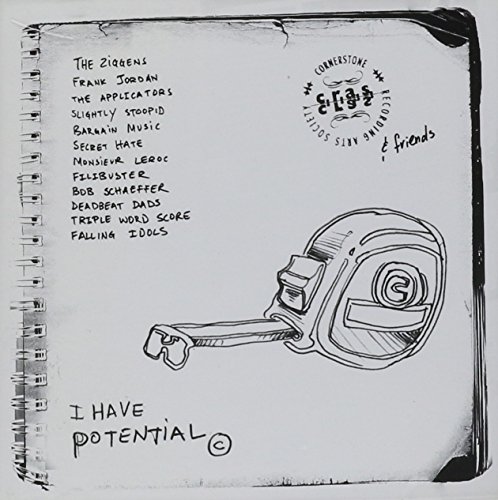 THE ZIGGENS
FRANK JORDAN
THE APPLICATORS
SLIGHTLY STOOPID
BARGAIN MUSIC
SECRET HATE
MONSIEUR LEROC
FILIBUSTER
BOB SCHAEFFER
DEADBEAT DADS
TRIPLE WORD SCORE
FALLING IDOLS
CORNERSTONE
RECORDING ARTS SOCIETY
c.r.a.s
& friends
C
I HAVE
POTENTIAL ©